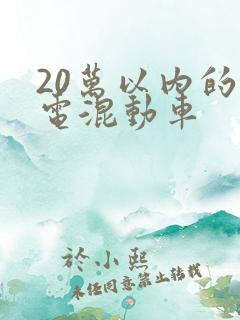 20萬以內的
電混動車
於小熙
未任同意禁止转载